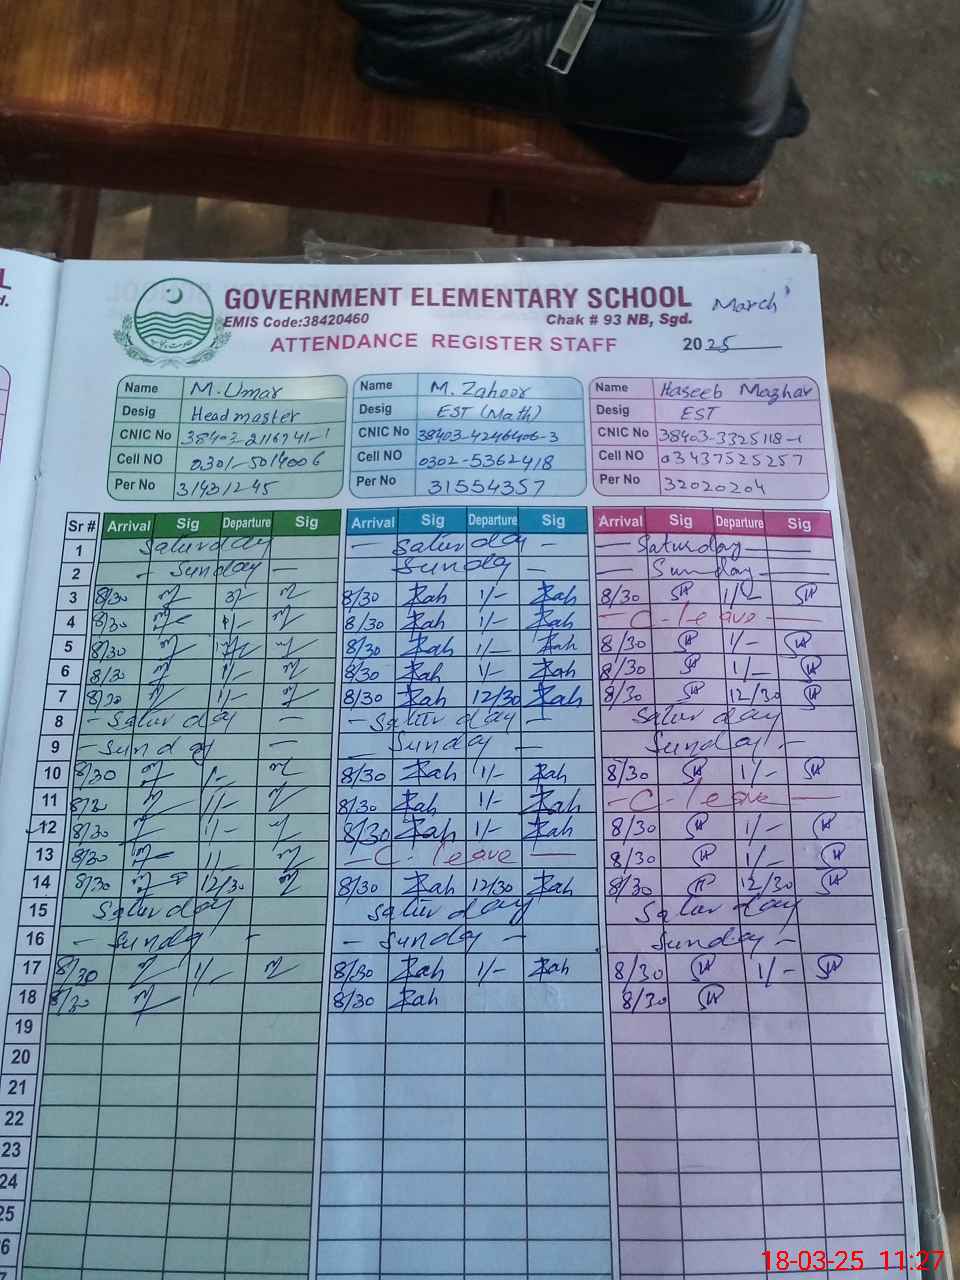 GOVERNMENT ELEMENTARY SCHOOL March
EMIS Code:38420460 Chak # 93 NB, Sgd.
ATTENDANCE REGISTER STAFF 2025
Name M. Umar Name M. Zahoor Name Haseeb Mazhar
Desig Headmaster Desig EST (Math) Desig EST
CNIC No 38403-2116741-1 CNIC No 38403-4246406-3 CNIC No 38403-3325118-1
Cell NO 0301-5014006 Cell NO 0302-5362418 Cell NO 03437525257
Per No 31431245 Per No 31554357 Per No 32020204
Sr # Arrival Sig Departure Sig Arrival Sig Departure Sig Arrival Sig Departure Sig
1 Saturday - Saturday - - Saturday -
2 - Sunday - Sunday - - Sunday -
3 8/30 8/30 Zah 1/- Zah 8/30 SH SH
4 8/30 8/30 Zah 1/- Zah - C. leave -
5 8/30 8/30 Zah 1/- Zah 8/30 SH 1/- SH
6 8/30 1/- 8/30 Zah 1/- Zah 8/30 SH 1/- SH
7 8/30 1/- 8/30 Zah 12/30 Zah 8/30 SH 12/30 SH
8 - Saturday - - Saturday - Saturday
9 - Sunday - - Sunday - Sunday -
10 8/30 1/- 8/30 Zah 1/- Zah 8/30 SH 1/- SH
11 8/30 1/- 8/30 Zah 1/- Zah - C. leave -
12 8/30 1/- 8/30 Zah 1/- Zah 8/30 SH 1/- SH
13 8/30 1/- - C. leave - 8/30 SH 1/- SH
14 8/30 12/30 8/30 Zah 12/30 Zah 8/30 SH 12/30 SH
15 Saturday Saturday Saturday
16 - Sunday - - Sunday - Sunday -
17 8/30 1/- 8/30 Zah 1/- Zah 8/30 SH 1/- SH
18 8/30 8/30 Zah 8/30 SH
19
20
21
22
23
24
25
18-03-25 11:27